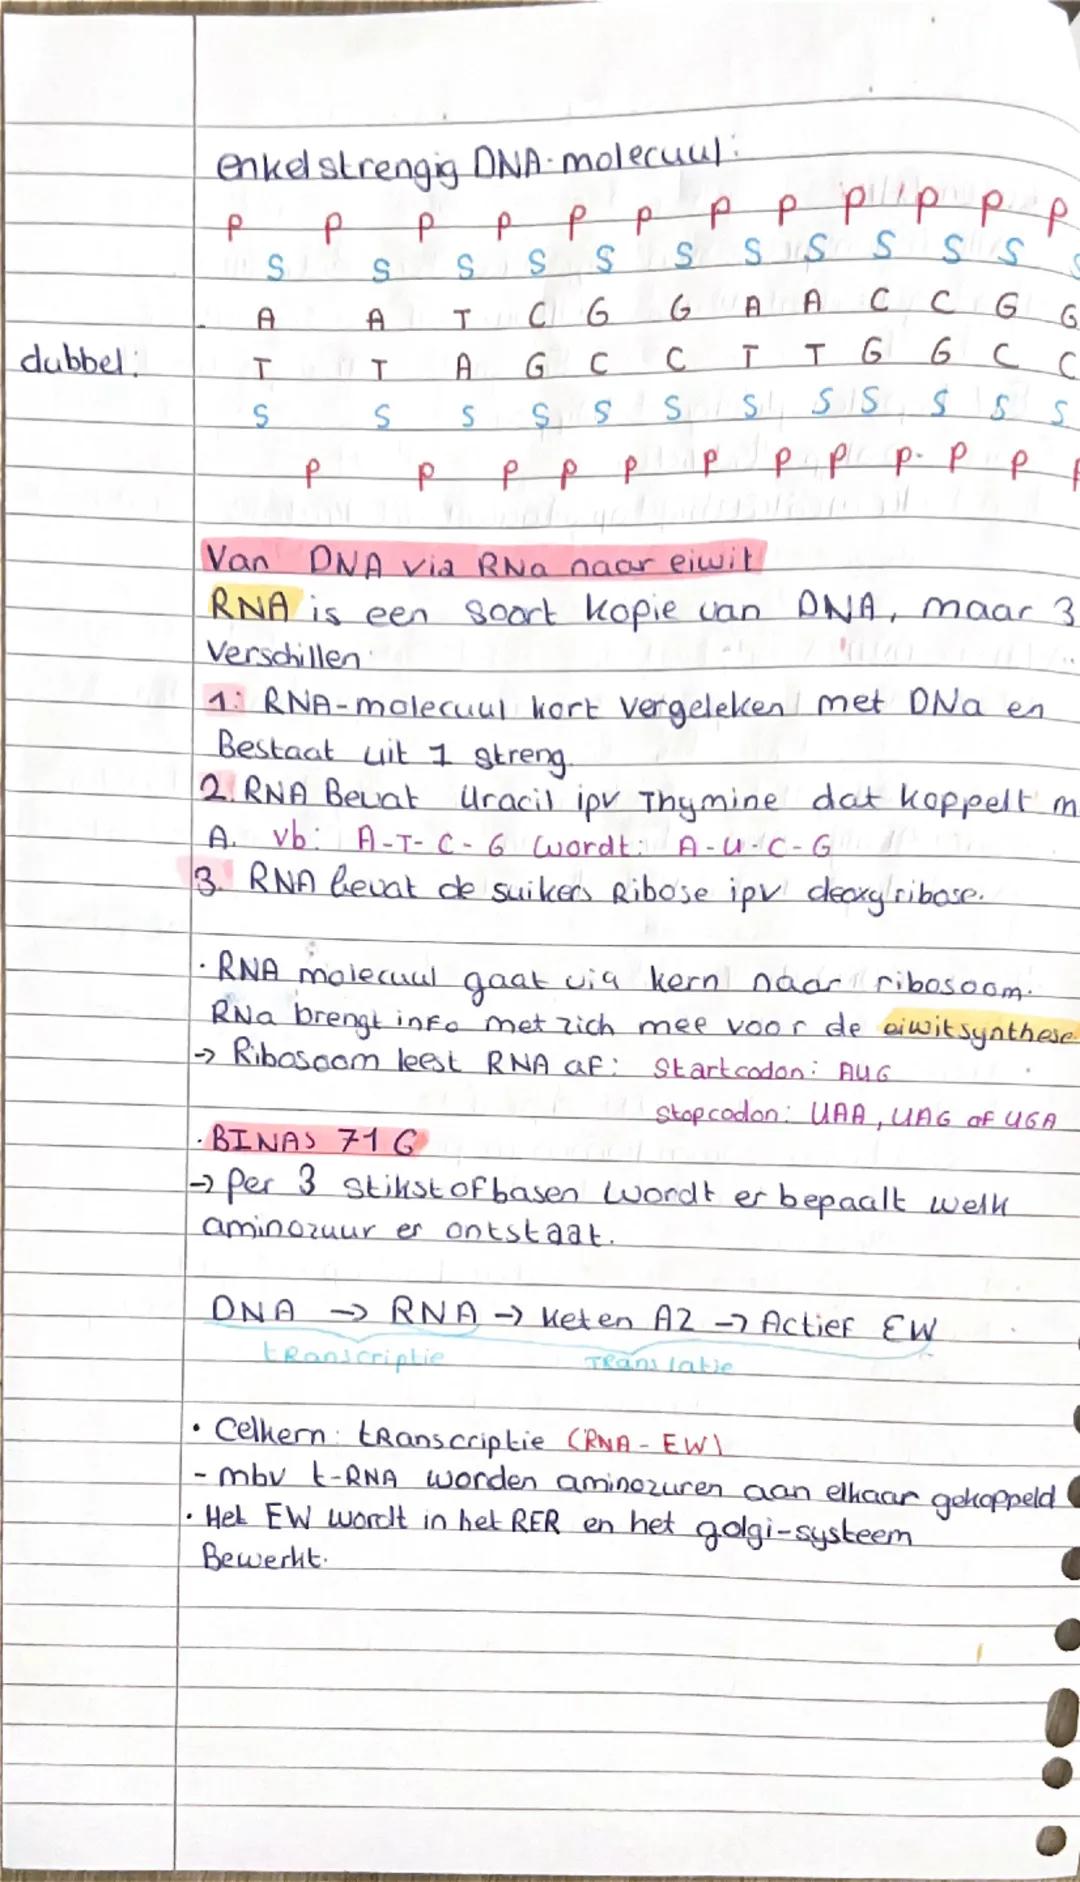 enkelstrengig DNA-molecuul:
P P P P P P P P P P P P
S S S S S S S S S S S S
A A T C G G A A C C G G
dubbel: T T A G C C T T G G C C
S S S S S S S S S S S S
P P P P P P P P P P P
Van DNA via RNa naar eiwit
RNA is een soort kopie van DNA, maar 3
Verschillen
1: RNA-molecuul kort vergeleken met DNa en
Bestaat uit 1 streng.
2. RNA Bevat Uracil ipv Thymine dat koppelt m
A. vb: A-T-C-G wordt: A-U-C-G
3. RNA bevat de suikers Ribose ipv deoxyribose.
· RNA molecuul gaat via kern naar ribosoom.
RNa brengt info met zich mee voor de eiwitsynthese
→ Ribosoom leest RNA af: Startcodon: AUG
stopcodon: UAA, UAG of UGA
· BINAS 71 G
→ Per 3 stikstofbasen wordt er bepaalt welk
aminozuur er ontstaat.
DNA → RNA → Keten AZ → Actief EW
transcriptie Translatie
• Celkern: transcriptie (RNA - EW)
- mbv t-RNA worden aminozuren aan elkaar gekoppeld
• Het EW wordt in het RER en het golgi-systeem
Bewerkt.